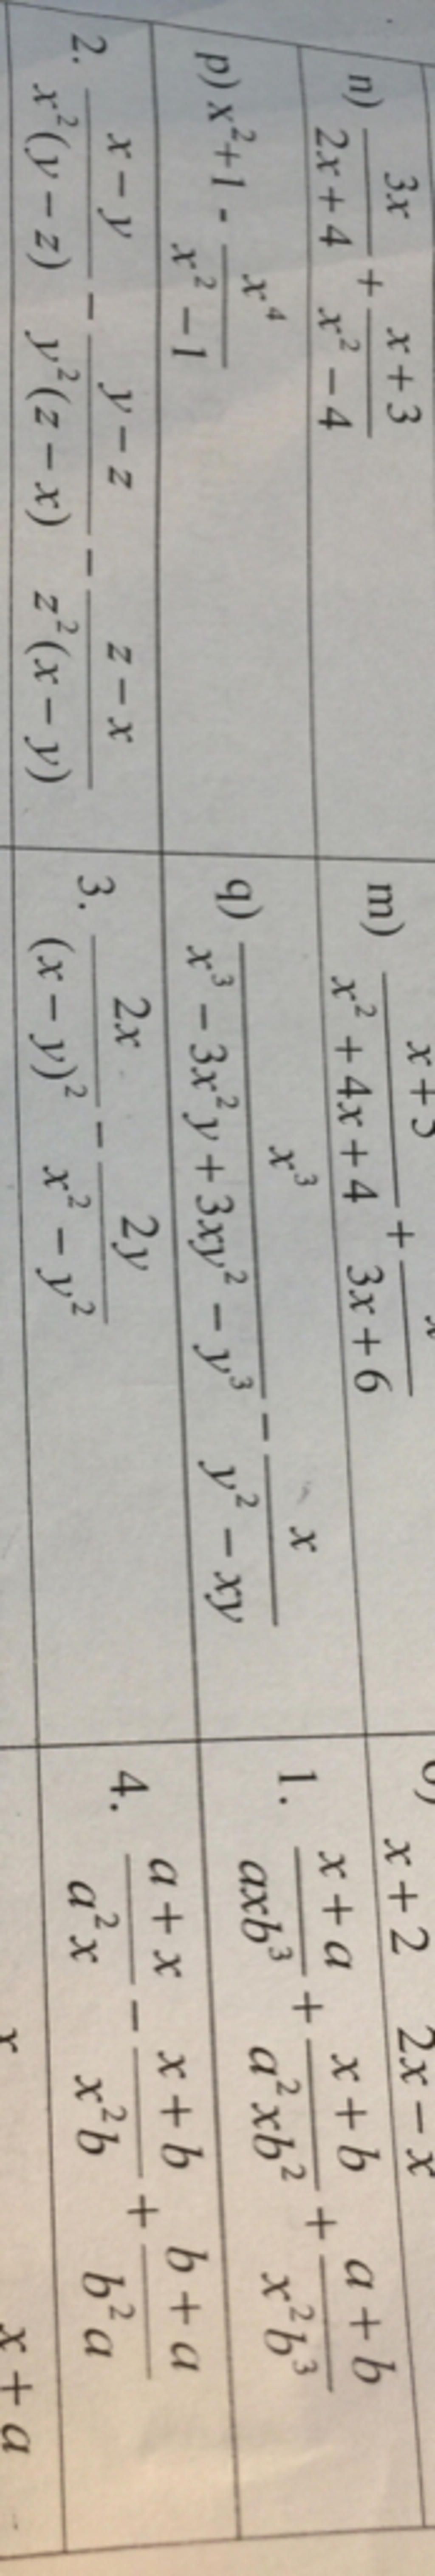 n) 3x/(2x + 4) + (x + 3)/(x² − 4)
m) /(x² + 4x + 4) + /(3x + 6)
x + 2 2x − x
p) x²+1 - x⁴/(x² − 1)
q) x³/(x³ − 3x²y + 3xy² − y³) − x/(y² − xy)
1. (x + a)/(axb³) + (x + b)/(a²xb²) + (a + b)/(x²b³)
2. (x − y)/(x²(y − z)) − (y − z)/(y²(z − x)) − (z − x)/(z²(x − y))
3. 2x/(x − y)² − 2y/(x² − y²)
4. (a + x)/(a²x) − (x + b)/(x²b) + (b + a)/(b²a)
x + a